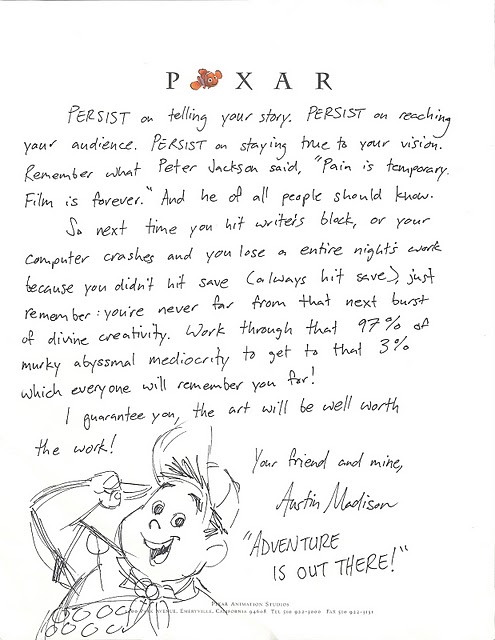 P XAR
PERSIST on telling your story. PERSIST on reaching
your audience. PERSIST on staying true to your vision.
Remember what Peter Jackson said, "Pain is temporary.
Film is forever." And he of all people should know.
So next time you hit writer's block, or your
computer crashes and you lose a entire night's work
because you didn't hit save (always hit save), just
remember: you're never far from that next burst
of divine creativity. Work through that 97% of
murky abyssmal mediocrity to get to that 3%
which everyone will remember you for!
I guarantee you, the art will be well worth
the work!
Your friend and mine,
Austin Madison
"ADVENTURE
IS OUT THERE!"
PIXAR ANIMATION STUDIOS
AVENUE, EMERYVILLE, CALIFORNIA 94608 TEL 510 922-3000 FAX 510 922-3151